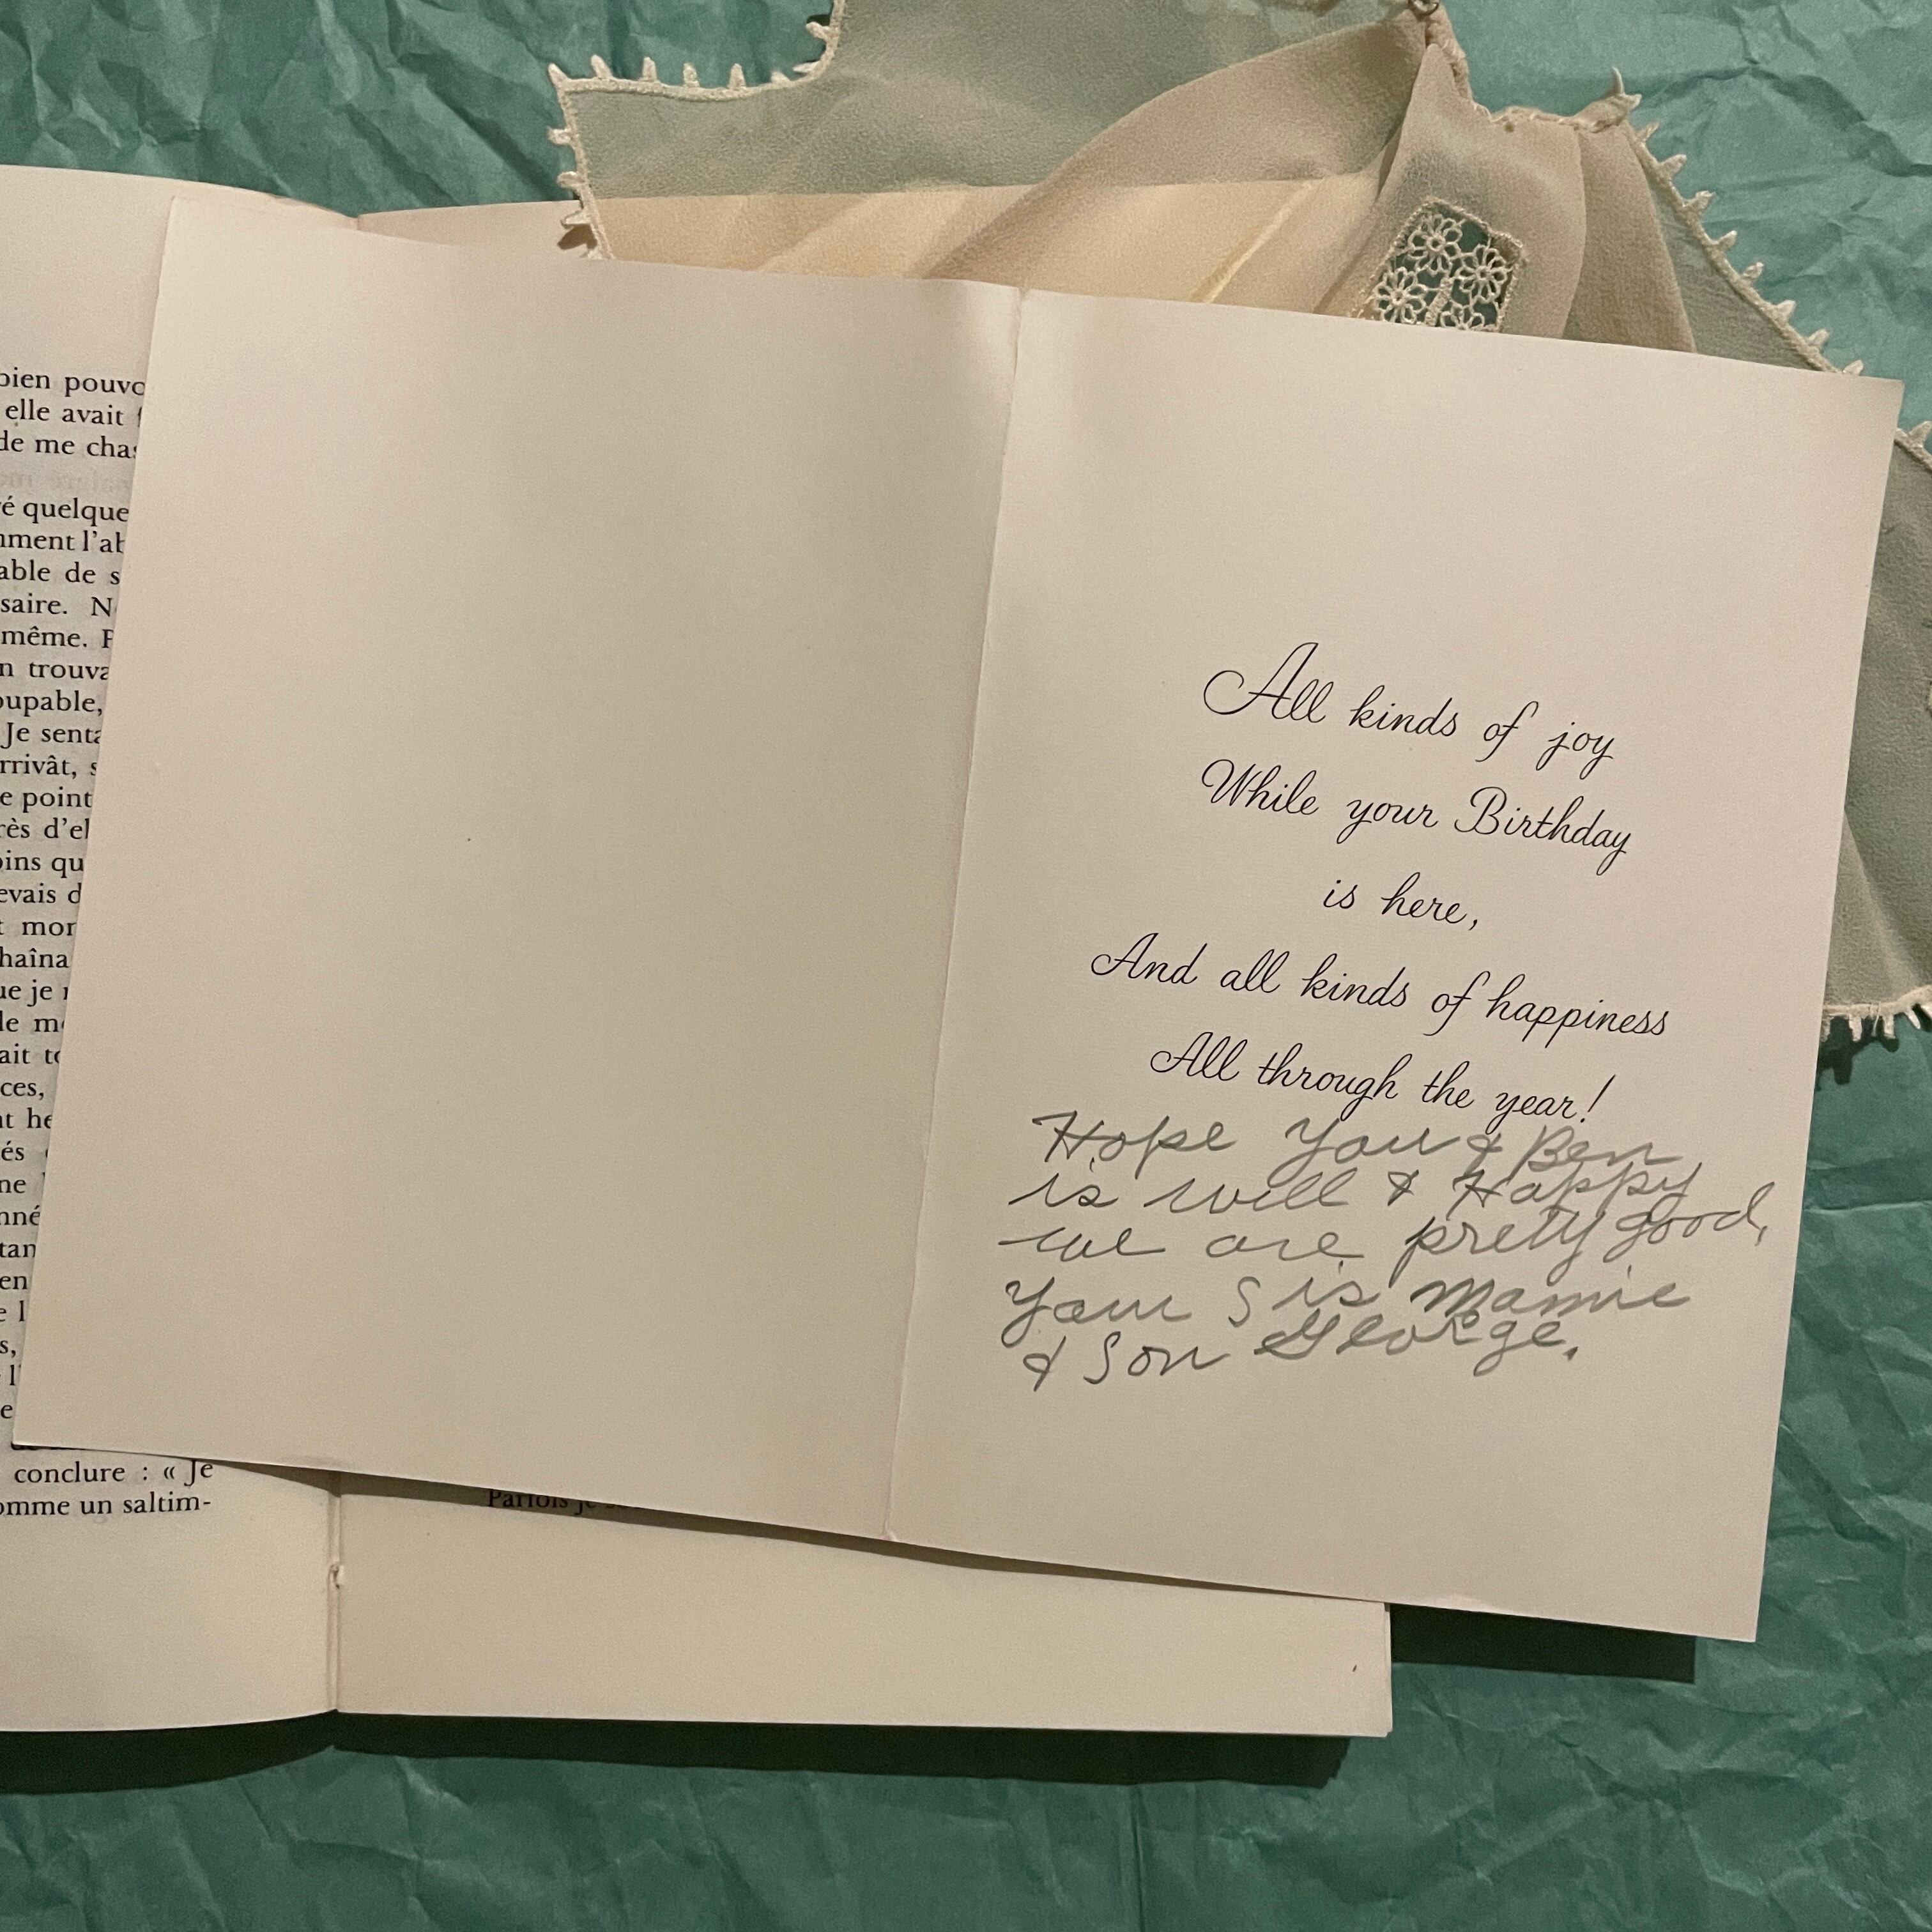 bien pouvo
elle avait
de me chas
é quelque
mment l'ab
able de s
saire. N
même. P
n trouva
oupable,
Je senta
rrivât, s
e point
rès d'el
oins qu
evais d
t mon
haîna
ue je
de m
ait to
ces,
nt he
és
ne
nné
tan
en
e l
s,
l'
e
conclure : « Je
omme un saltim-
Parfois je
All kinds of joy
While your Birthday
is here,
And all kinds of happiness
All through the year!
Hope you & Ben
is well & Happy
we are pretty good,
Your Sis Mamie
& Son George.